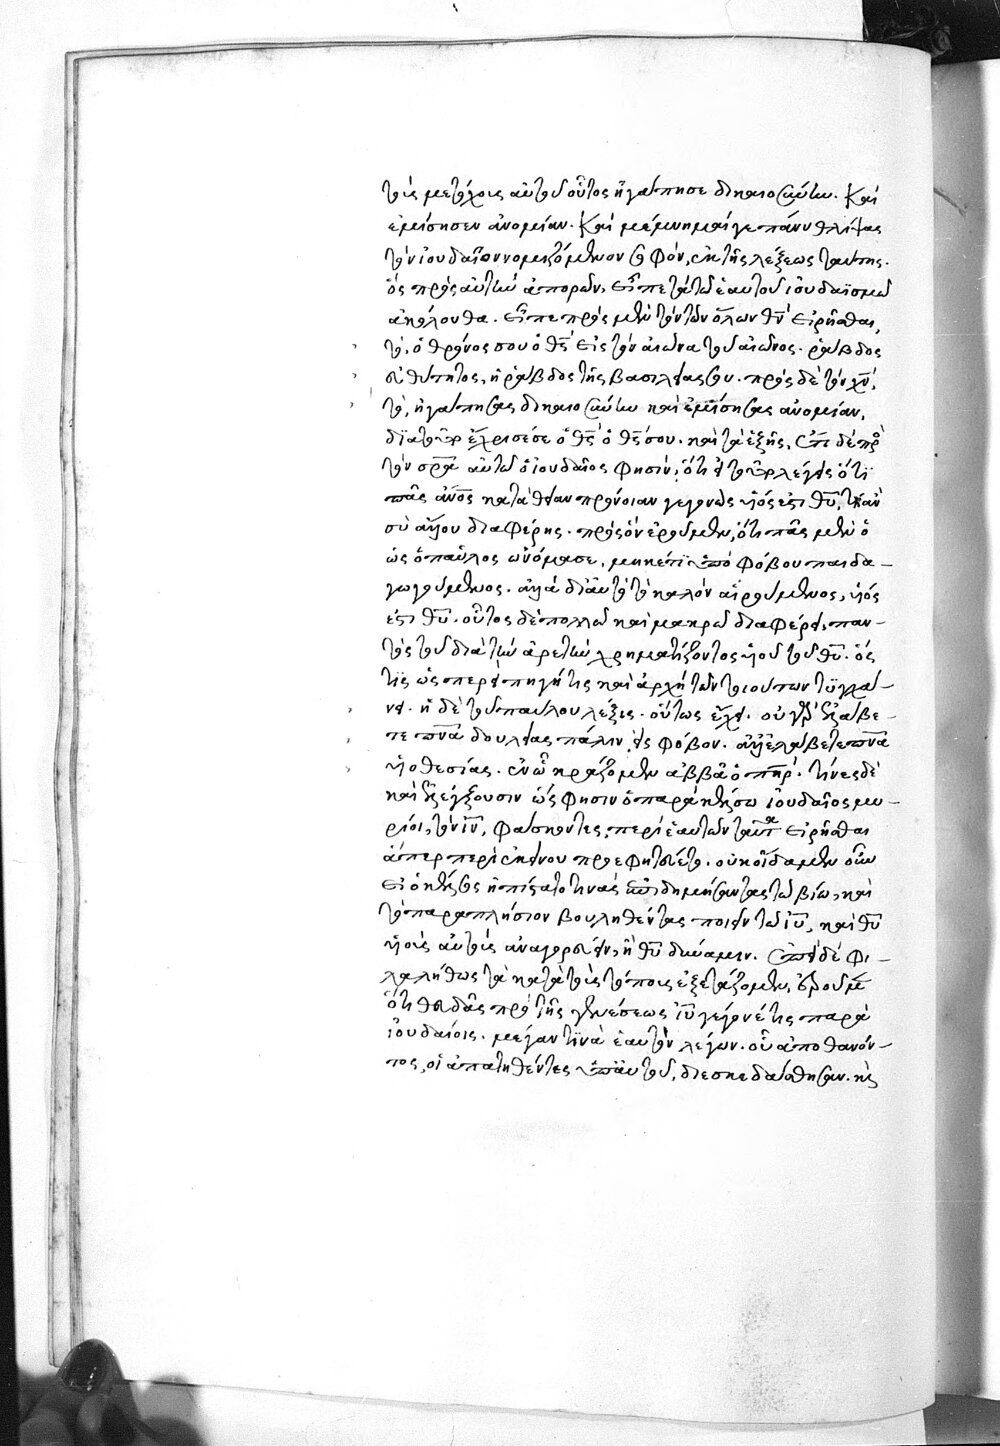 τοῖς μετόχοις αὐτοῦ οὗτος ἠγάπησε δικαιοσύνην. καὶ
ἐμίσησεν ἀνομίαν. καὶ μέμνημαί γε πάνυ θλίψας
τὸν ἰουδαῖον νομιζόμενον σοφόν, ἐκ τῆς λέξεως ταύτης.
ὃς πρὸς αὐτὴν ἀπορῶν, εἶπε τὰ τῷ ἑαυτοῦ ἰουδαϊσμῷ
ἀκόλουθα. εἶπε πρὸς μὲν τὸν τῶν ὅλων θν̄ εἰρῆσθαι,
τὸ, ὁ θρόνος σου ὁ θς̄ εἰς τὸν αἰῶνα τοῦ αἰῶνος. ῥάβδος
εὐθύτητος, ἡ ῥάβδος τῆς βασιλείας σου. πρὸς δὲ τὸν χν̄,
τὸ, ἠγάπησας δικαιοσύνην καὶ ἐμίσησας ἀνομίαν,
διὰ τοῦτο ἔχρισέ σε ὁ θς̄ ὁ θς̄ σου. καὶ τὰ ἑξῆς. ἔτι δὲ πρὸς
τὸν σρ̄α αὐτῷ ὁ ἰουδαῖος φησὶν, ὅτι εἰ τοῦτο λέγεις ὅτι
πᾶς ἄνος̄ κατὰ θείαν πρόνοιαν γεγονὼς υἱός ἐστι θῡ, τί ἂν
σὺ ἄλλου διαφέρης. πρὸς ὃν ἐροῦμεν, ὅτι πᾶς μὲν ὁ
ὡς ὁ παῦλος ὠνόμασε, μηκέτι ὑπὸ φόβου παιδα-
γωγούμενος. ἀλλὰ δι' αὐτὸ τὸ καλὸν αἱρούμενος, υἱός
ἐστι θῡ. οὗτος δὲ πολλῷ καὶ μακρῷ διαφέρει παν-
τὸς τοῦ διὰ τὴν ἀρετὴν χρηματίζοντος υἱοῦ τοῦ θῡ. ὅς
τις ὡσπερεὶ πηγή τις καὶ ἀρχὴ τῶν τοιούτων τυγχά-
νει. ἡ δὲ τοῦ παύλου λέξις. οὕτως ἔχει. οὐ γὰρ ἐλάβε-
τε πνᾱ δουλείας πάλιν εἰς φόβον. ἀλλ' ἐλάβετε πνᾱ
υἱοθεσίας. ἐν ᾧ κράζομεν ἀββᾶ ὁ πηρ̄. τινὲς δὲ
καὶ ἐλέγξουσιν ὥς φησιν ὁ παρὰ κέλσῳ ἰουδαῖος μυ-
ρίοι, τὸν ιν̄, φάσκοντες, περὶ ἑαυτῶν ταῦτα εἰρῆσθαι
ἅπερ περὶ ἐκείνου προεφητεύετο. οὐκ οἴδαμεν οὖν
εἰ ὁ κέλσος ἠπίστατό τινας ἐπιδημήσαντας τῷ βίῳ, καὶ
τὸ παραπλήσιον βουληθέντας ποιεῖν τῷ ιῡ, καὶ θῡ
υἱοὺς αὑτοὺς ἀναγορεύειν, ἢ θῡ δύναμιν. ἐπεὶ δὲ φι-
λαλήθως τὰ κατὰ τοὺς τόπους ἐξετάζομεν, ἐροῦμεν
ὅτι θευδᾶς πρὸ τῆς γενέσεως ιῡ γέγονέ τις παρὰ
ἰουδαίοις. μέγαν τινὰ ἑαυτὸν λέγων. οὗ ἀποθανόν-
τος, οἱ ἀπατηθέντες ὑπ' αὐτοῦ, διεσκεδάσθησαν. κὶ